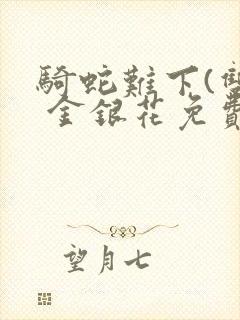 騎蛇難下(雙
金銀花免費
望月七